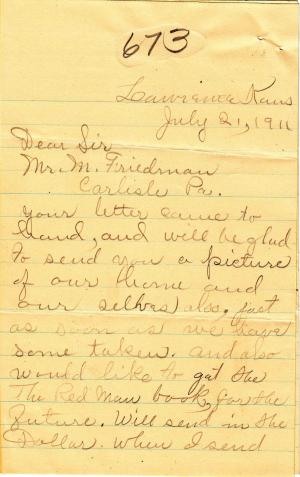 673
Lawrence Kans
July 21, 1911
Dear Sir
Mr. M. Friedman
Carlisle Pa.
your letter came to
hand, and will be glad
to send you a picture
of our home and
our selves also, just
as soon as we have
some taken. and also
would like to get the
The Red Man book, for the
future. Will send in the
Dollar. when I send